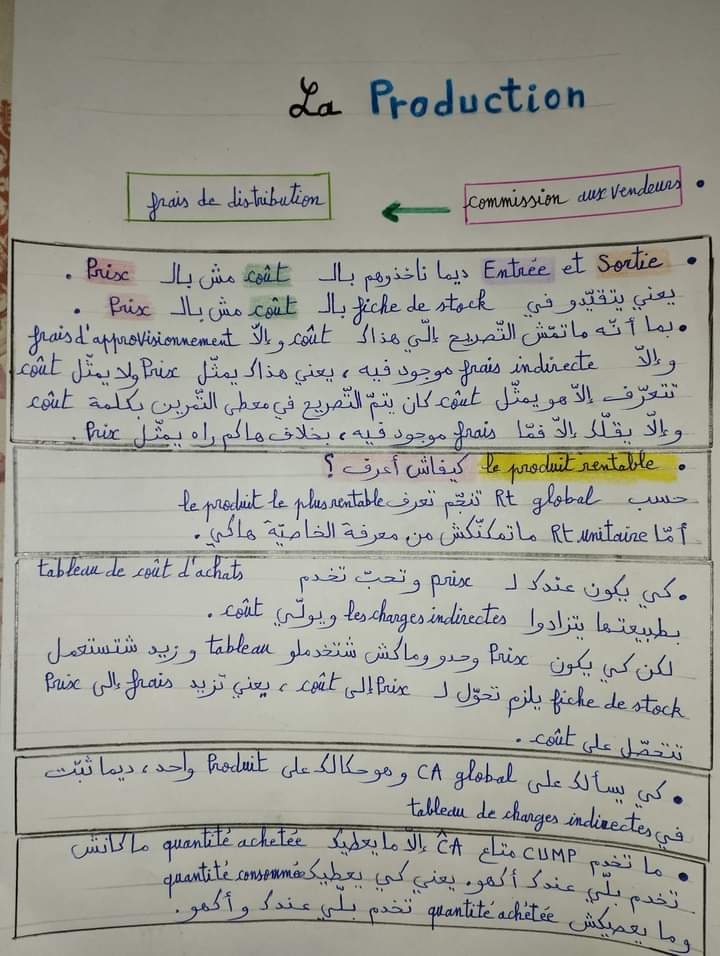 La Production
• commission aux vendeurs ← frais de distribution
• Sortie et Entrée ديما ناخذوهم بالـ coût مش بالـ Prix .
يعني يتقيّدو في fiche de stock بالـ coût مش بالـ Prix .
• بما أنّه ماتمّش التّصريح إلّي هذاك coût و إلّا frais d'approvisionnement
و إلّا frais indirecte موجود فيه ، يعني هذاك يمثّل Prix ولا يمثّل coût
تتعرّف إلّا هو يمثّل coût كان يتمّ التّصريح في معطى التّمرين بكلمة coût
و إلّا يقلّك إلّا فمّا frais موجود فيه ، بخلاف هاكم راه يمثّل Prix .
• le produit rentable كيفاش أعرف ؟
حسب Rt global تنجّم تعرف le produit le plus rentable
أمّا Rt unitaire ماتمكنّكش من معرفة الخاصيّة هاكي .
• كي يكون عندك لـ prix و تحبّ تخدم tableau de coût d'achats
بطبيعتها يتزادوا les charges indirectes و يولّي coût .
لكن كي يكون Prix وحدو وماكش شتخدملو tableau و زيد شتستعمل
fiche de stock يلزم تحوّل لـ Prix إلى coût ، يعني تزيد frais إلى Prix
تتحصّل على coût .
• كي يسألك على CA global و هو حكالك على Produit واحد ، ديما ثبّت
في tableau de charges indirectes
• ما تخدم CUMP متاع CA إلّا ما يعطيك quantité achetée ماكانش
تخدم بلّي عندك أكهو. يعني كي يعطيك quantité consommée
وما يعطيكش quantité achétée تخدم بلّي عندك و أكهو.